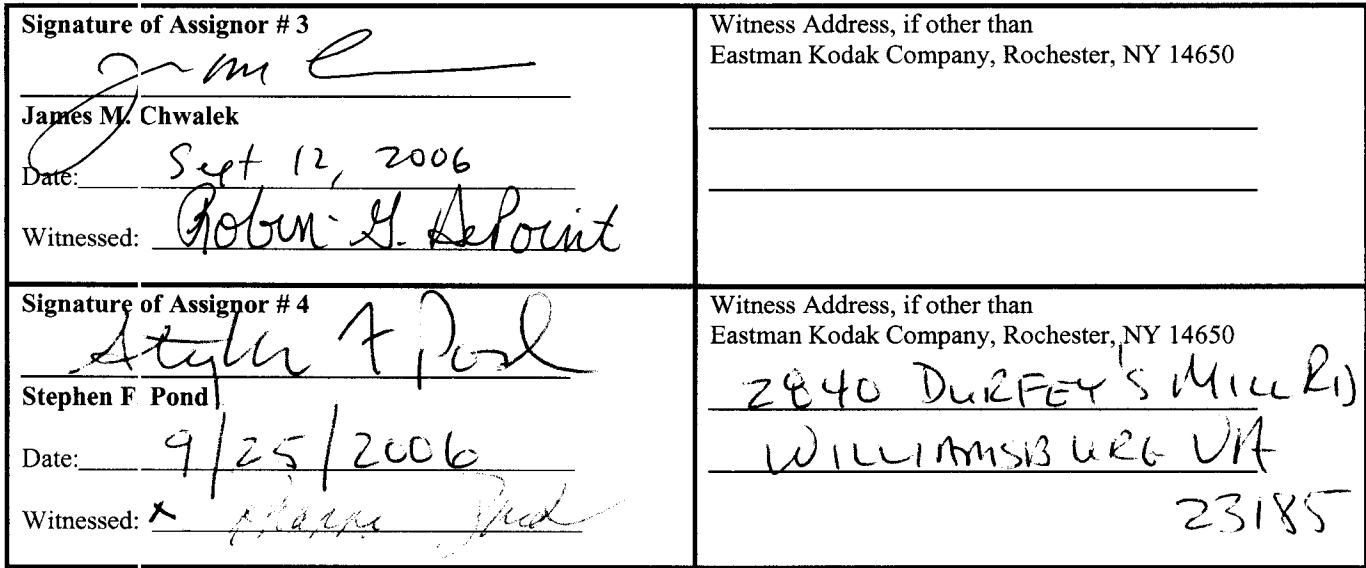 Signature of Assignor # 3
James M. Chwalek
Date: Sept 12, 2006
Witnessed: Robin G. DePoint
Witness Address, if other than
Eastman Kodak Company, Rochester, NY 14650
Signature of Assignor # 4
Stephen F Pond
Stephen F Pond
Date: 9/25/2006
Witnessed: x
Witness Address, if other than
Eastman Kodak Company, Rochester, NY 14650
2840 DURFEY'S MILL RD
WILLIAMSBURG VA
23185